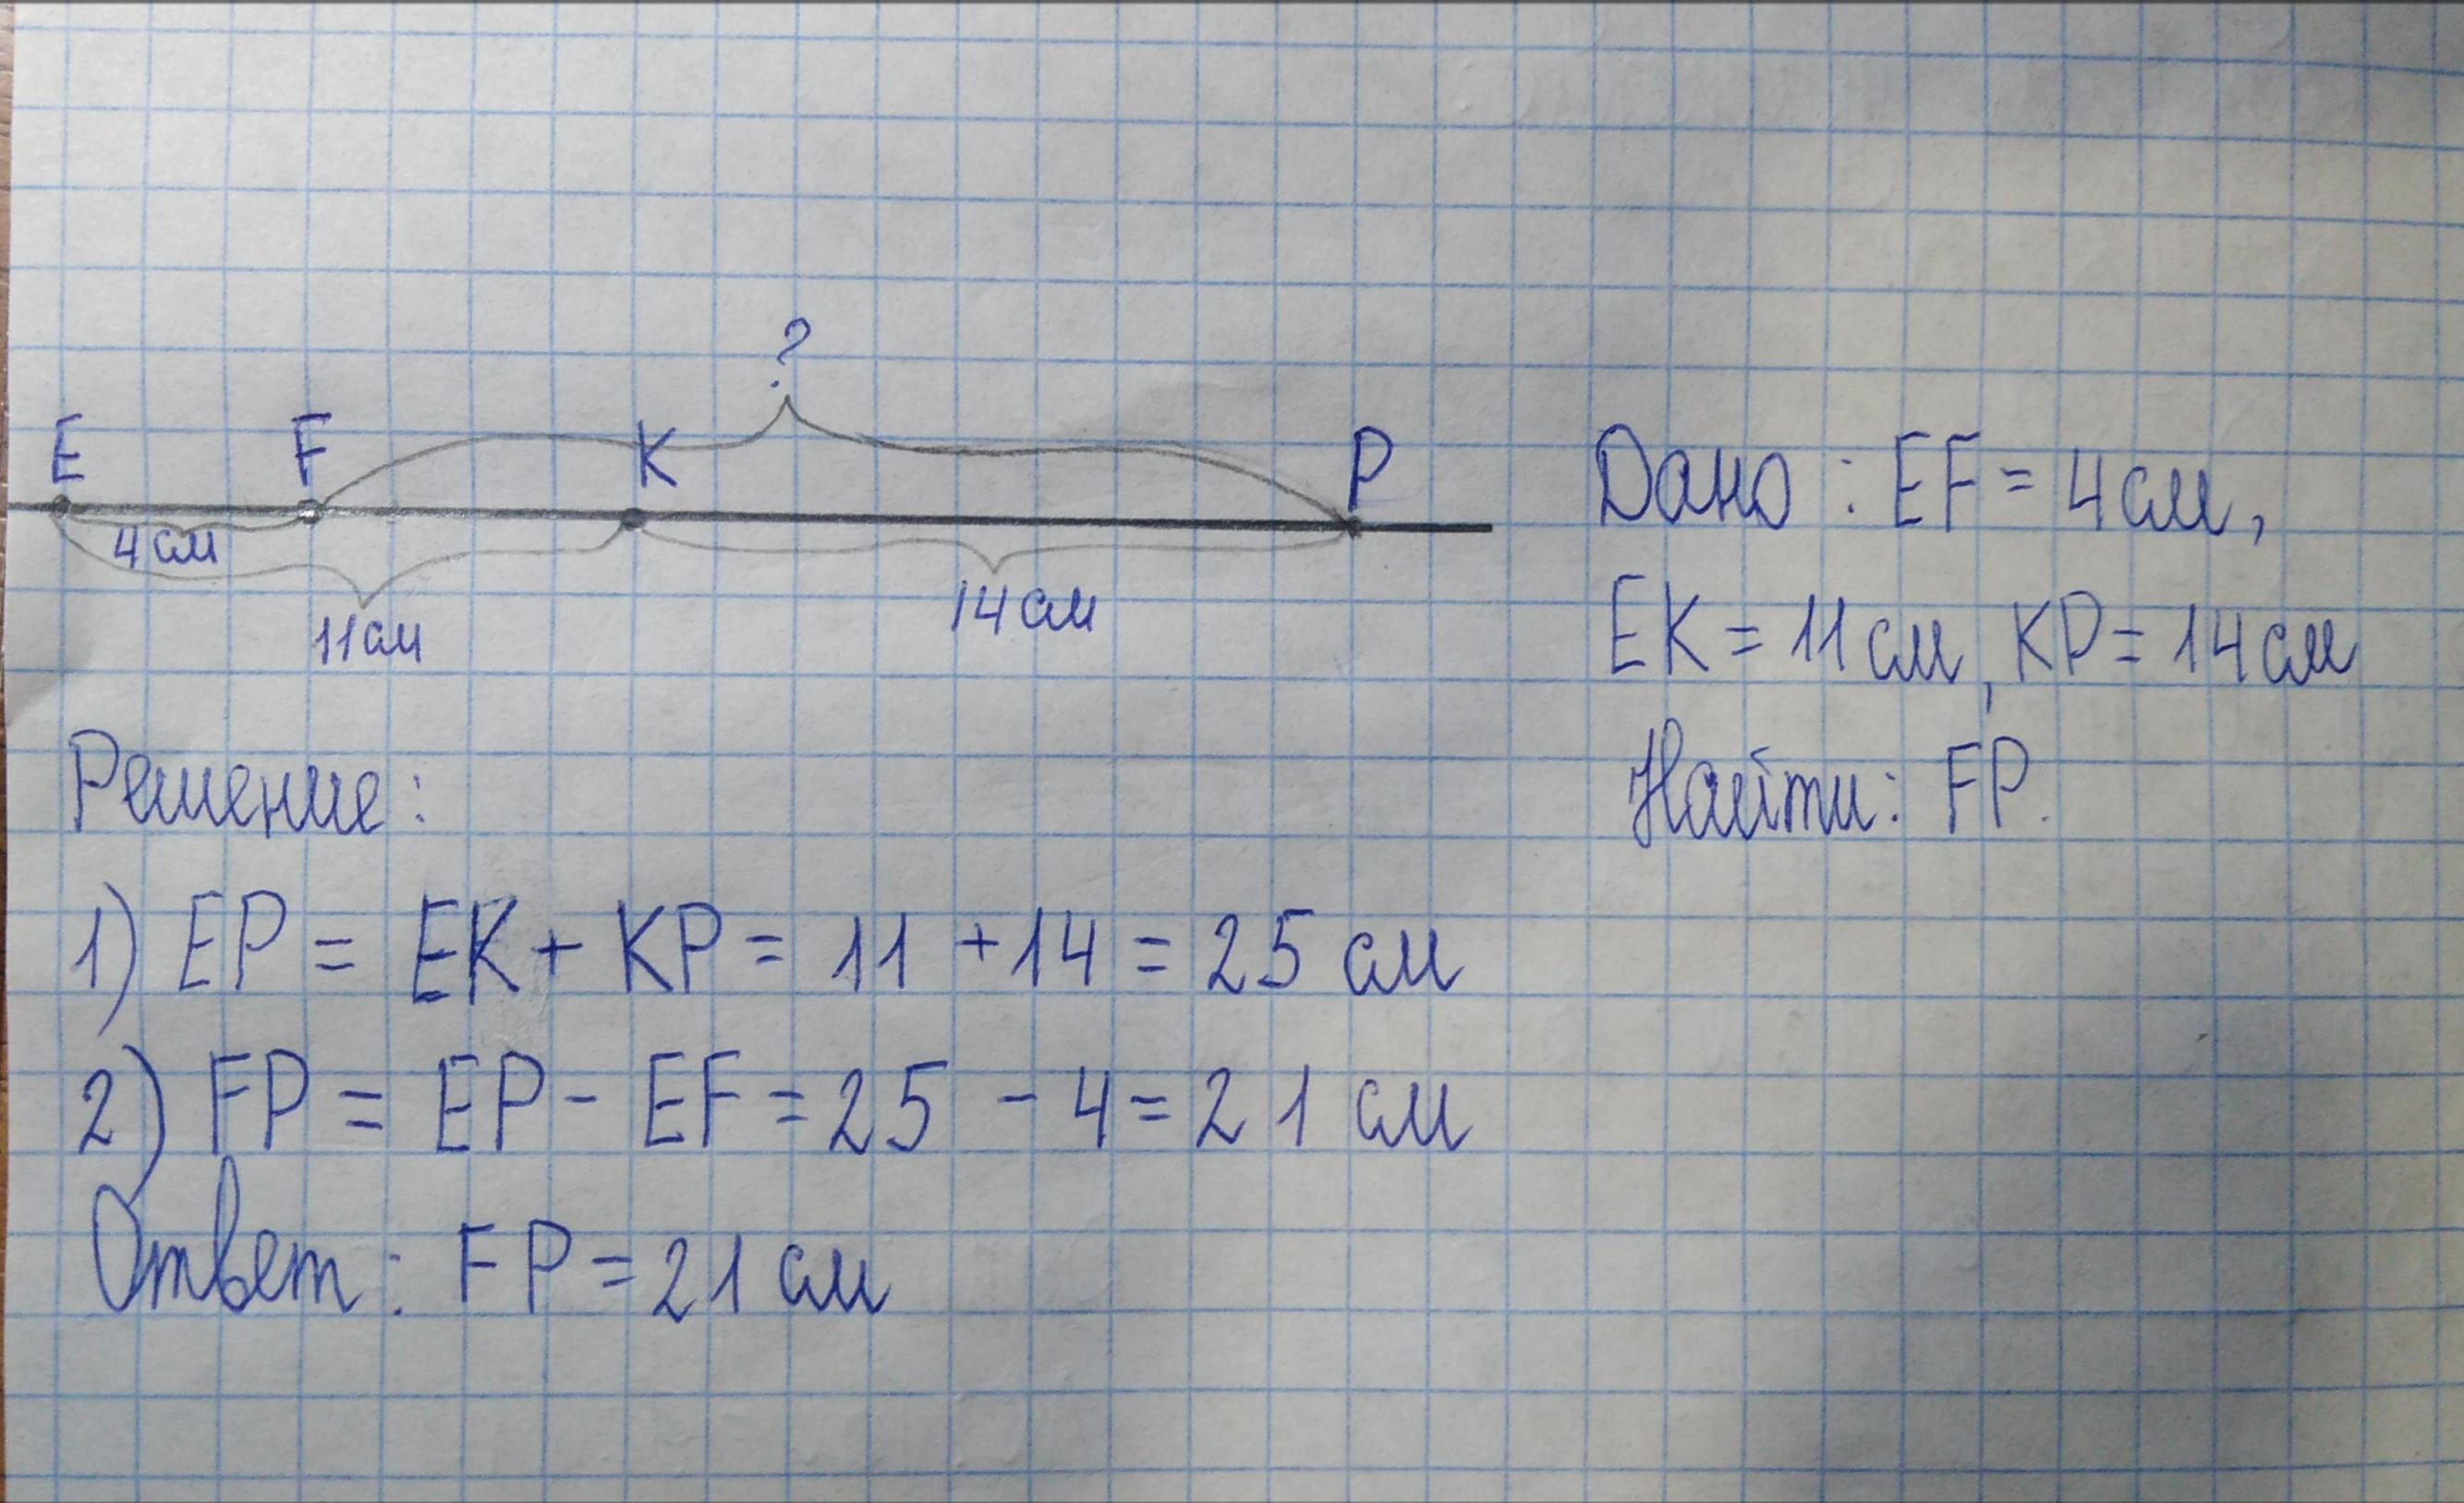 ?
E F K P
4 см
11 см
14 см
Дано : EF = 4 см,
EK = 11 см, KP = 14 см
Найти: FP.
Решение:
1) EP = EK + KP = 11 + 14 = 25 см
2) FP = EP - EF = 25 - 4 = 21 см
Ответ: FP = 21 см